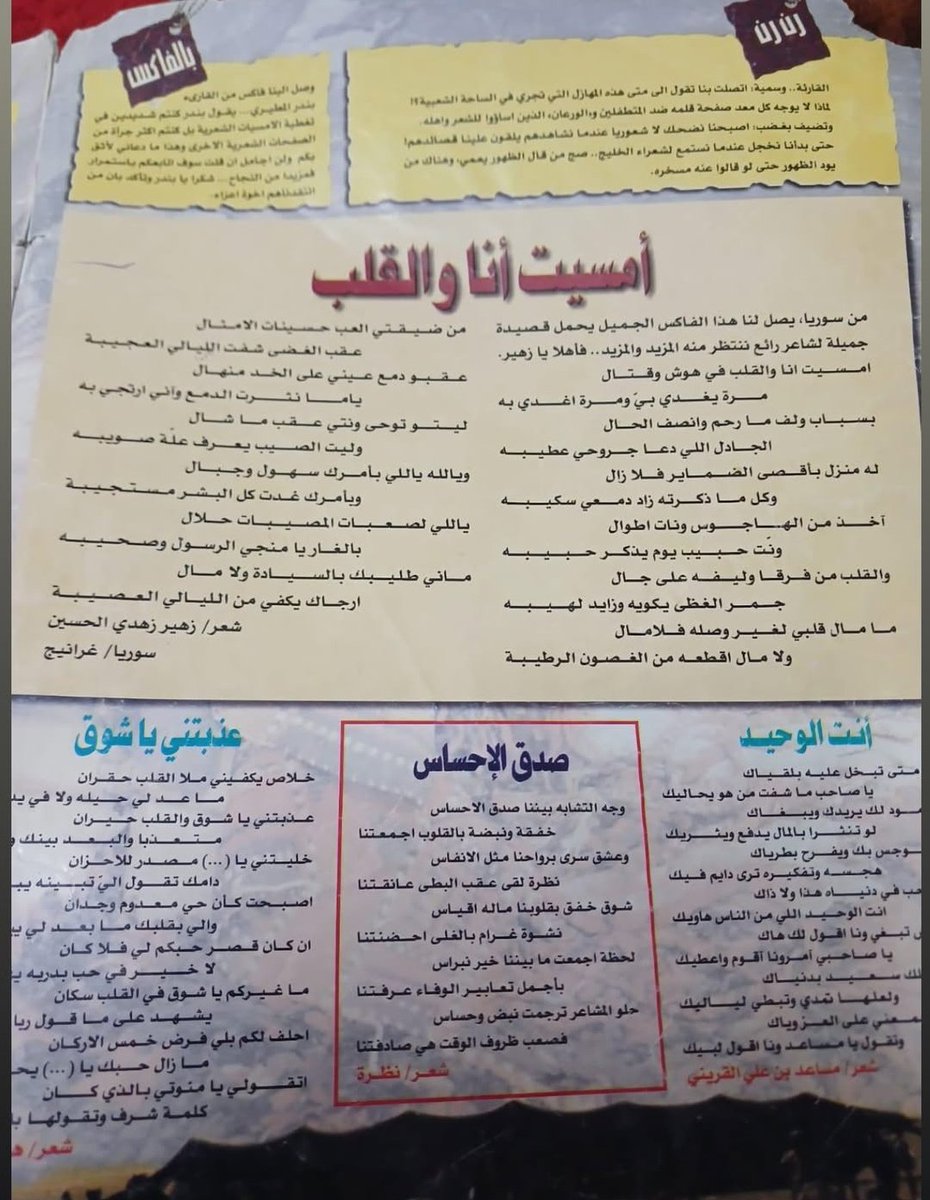 رن رن
القارئة.. وسمية: اتصلت بنا تقول الى متى هذه المهازل التي تجري في الساحة الشعبية؟!
لماذا لا يوجه كل معد صفحة قلمه ضد المتطفلين و«الورعان» الذين اساؤوا للشعر واهله.
وتضيف بغضب: اصبحنا نضحك لا شعوريا عندما نشاهدهم يلقون علينا قصائدهم!
حتى بدانا نخجل عندما نستمع لشعراء الخليج.. صج من قال الظهور يعمي، وهناك من
يود الظهور حتى لو قالوا عنه مسخره.
بالفاكس
وصل الينا فاكس من القارىء
بندر المطيري... يقول بندر كنتم شديدين في
تغطية الامسيات الشعرية بل كنتم اكثر جرأة من
الصفحات الشعرية الاخرى وهذا ما دعاني لأثق
بكم ولن اجامل ان قلت سوف اتابعكم باستمرار
فمزيدا من النجاح... شكرا يا بندر وتأكد بان من
انتقدناهم اخوة اعزاء.
أمسيت أنا والقلب
من سوريا، يصل لنا هذا الفاكس الجميل يحمل قصيدة
جميلة لشاعر رائع ننتظر منه المزيد والمزيد.. فأهلا يا زهير.
امسيت انا والقلب في هوش وقتال
مرة يغدي بيّ ومرة اغدي به
بسباب ولف ما رحم وانصف الحال
الجادل اللي دعا جروحي عطيبه
له منزل بأقصى الضماير فلا زال
وكل ما ذكرته زاد دمعي سكيبه
آخذ من الهاجوس ونات اطوال
ونّت حبيب يوم يذكر حبيبه
والقلب من فرقا وليفه على جال
جمر الغظى يكويه وزايد لهيبه
ما مال قلبي لغير وصله فلامال
ولا مال اقطعه من الغصون الرطيبة
من ضيقتي العب حسينات الامثال
عقب الغضى شفت الليالي العجيبة
عقبو دمع عيني على الخد منهال
ياما نثرت الدمع واني ارتجي به
ليتو توحى ونتي عقب ما شال
وليت الصيب يعرف علّة صويبه
ويالله ياللي بأمرك سهول وجبال
وبأمرك غدت كل البشر مستجيبة
ياللي لصعبات المصيبات حلال
بالغار يا منجي الرسول وصحيبه
ماني طليبك بالسيادة ولا مال
ارجاك يكفي من الليالي العصيبة
شعر/ زهير زهدي الحسين
سوريا/ غرانيج
أنت الوحيد
متى تبخل عليه بلقياك
يا صاحب ما شفت من هو يحاليك
لك يريدك ويبغاك
لو تنشرا بالمال يدفع ويشريك
بك ويفرح بطرياك
هجسه وتفكيره ترى دايم فيك
في دنياه هذا ولا ذاك
انت الوحيد اللي من الناس هاويك
تبغي ونا اقول لك هاك
يا صاحبي أمرونا أقوم واعطيك
سعيد بدنياك
ولعلها تمدي وتبطي لياليك
على العز وياك
وتقول يا مساعد ونا اقول لبيك
شعر/ مساعد بن علي القريني
صدق الإحساس
وجه التشابه بيننا صدق الاحساس
خفقة ونبضة بالقلوب اجمعتنا
وعشق سرى برواحنا مثل الانفاس
نظرة لقى عقب البطى عانقتنا
شوق خفق بقلوبنا ماله اقياس
نشوة غرام بالغلى احضنتنا
لحظة اجمعت ما بيننا خير نبراس
بأجمل تعابير الوفاء عرفتنا
حلو المشاعر ترجمت نبض وحساس
فصعب ظروف الوقت هي صادفتنا
شعر/ نظرة
عذبتني يا شوق
خلاص يكفيني ملا القلب حقران
ما عد لي حيله ولا في
عذبتني يا شوق والقلب حيران
متعذبا والبعد بينك
خليتني يا (...) مصدر للاحزان
دامك تقول اليّ تبينه
اصبحت كأن حي معدوم وجدان
والي بقلبك ما بعد لي
ان كان قصر حبكم لي فلا كان
لا خير في حب بدربه
ما غيركم يا شوق في القلب سكان
يشهد على ما قول
احلف لكم بلي فرض خمس الاركان
ما زال حبك يا (...)
اتقولي يا منوتي بالذي كان
كلمة شرف وتقولها
شعر/